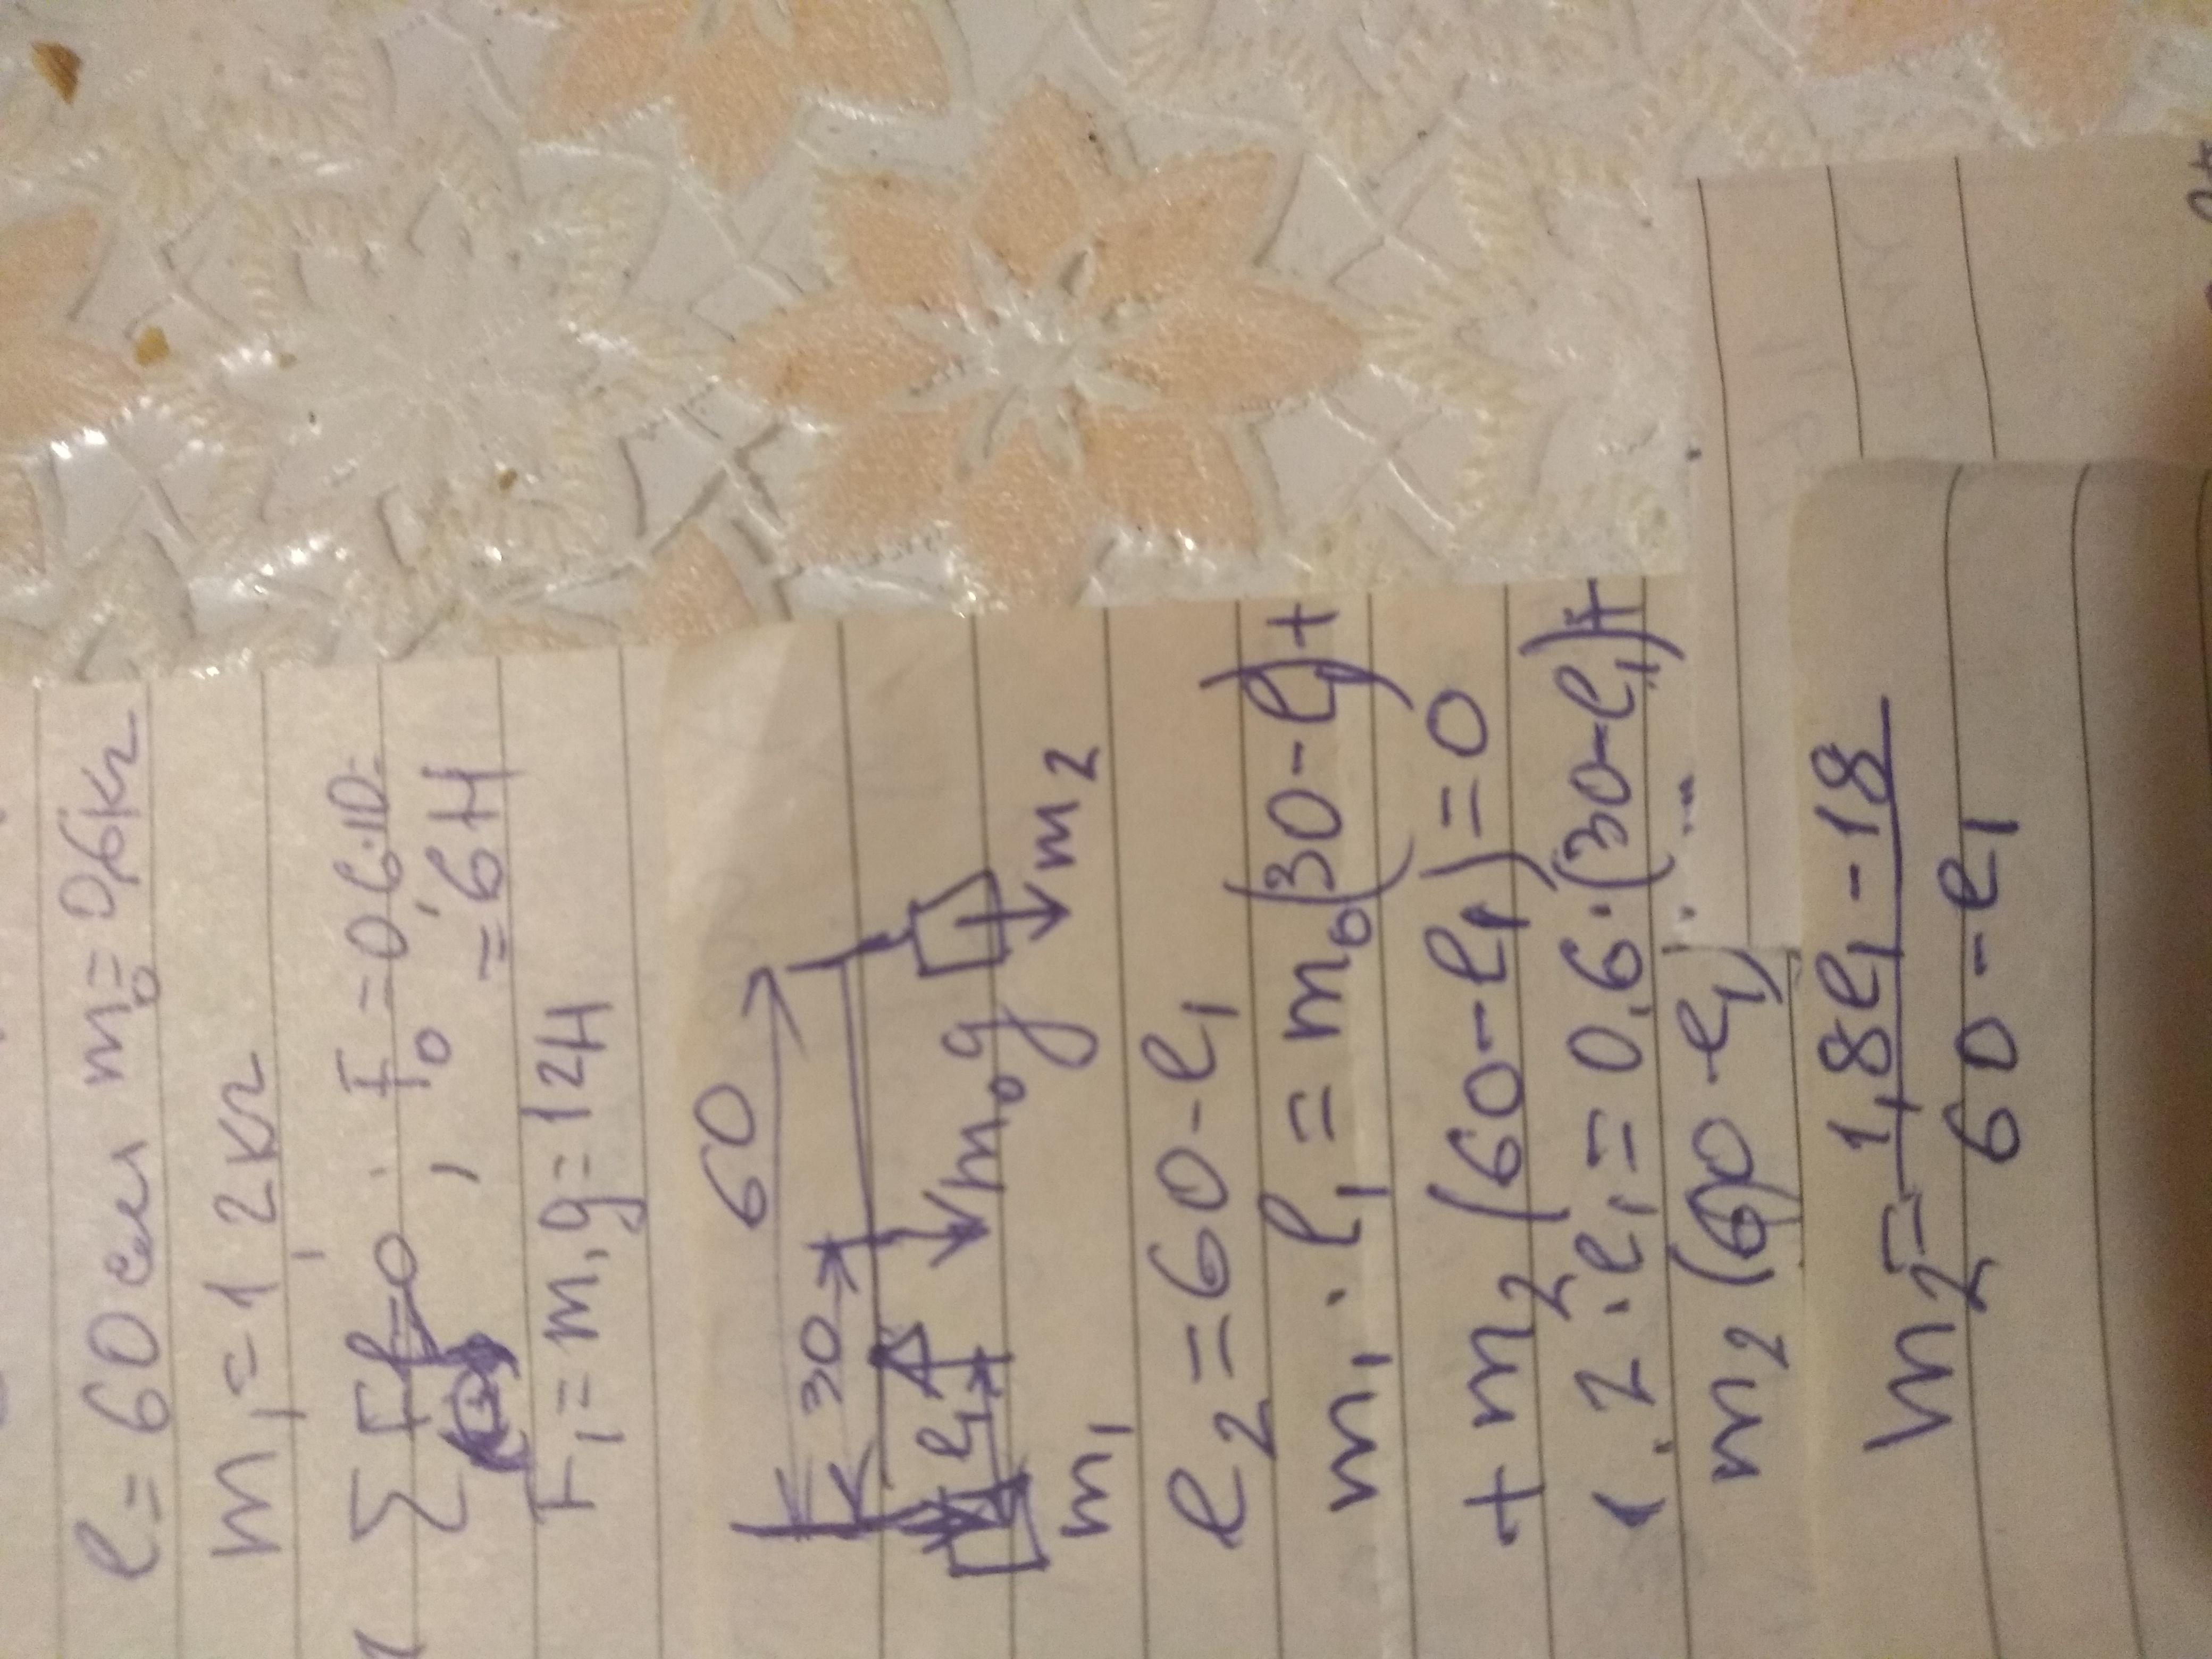 l = 60 см m₀ = 0,6 кг
m₁ = 1,2 кг
F₀ = 0,6·10=
= 6Н
F₁ = m₁g = 12Н
60
30
l₁
m₀g
m₁
m₂
l₂ = 60 - l₁
m₁ · l₁ = m₀(30 - l₁) +
+ m₂(60 - l₁) = 0
1,2·l₁ = 0,6·(30-l₁)+
m₂(60-l₁)
m₂ = (1,8l₁ - 18)/(60 - l₁)